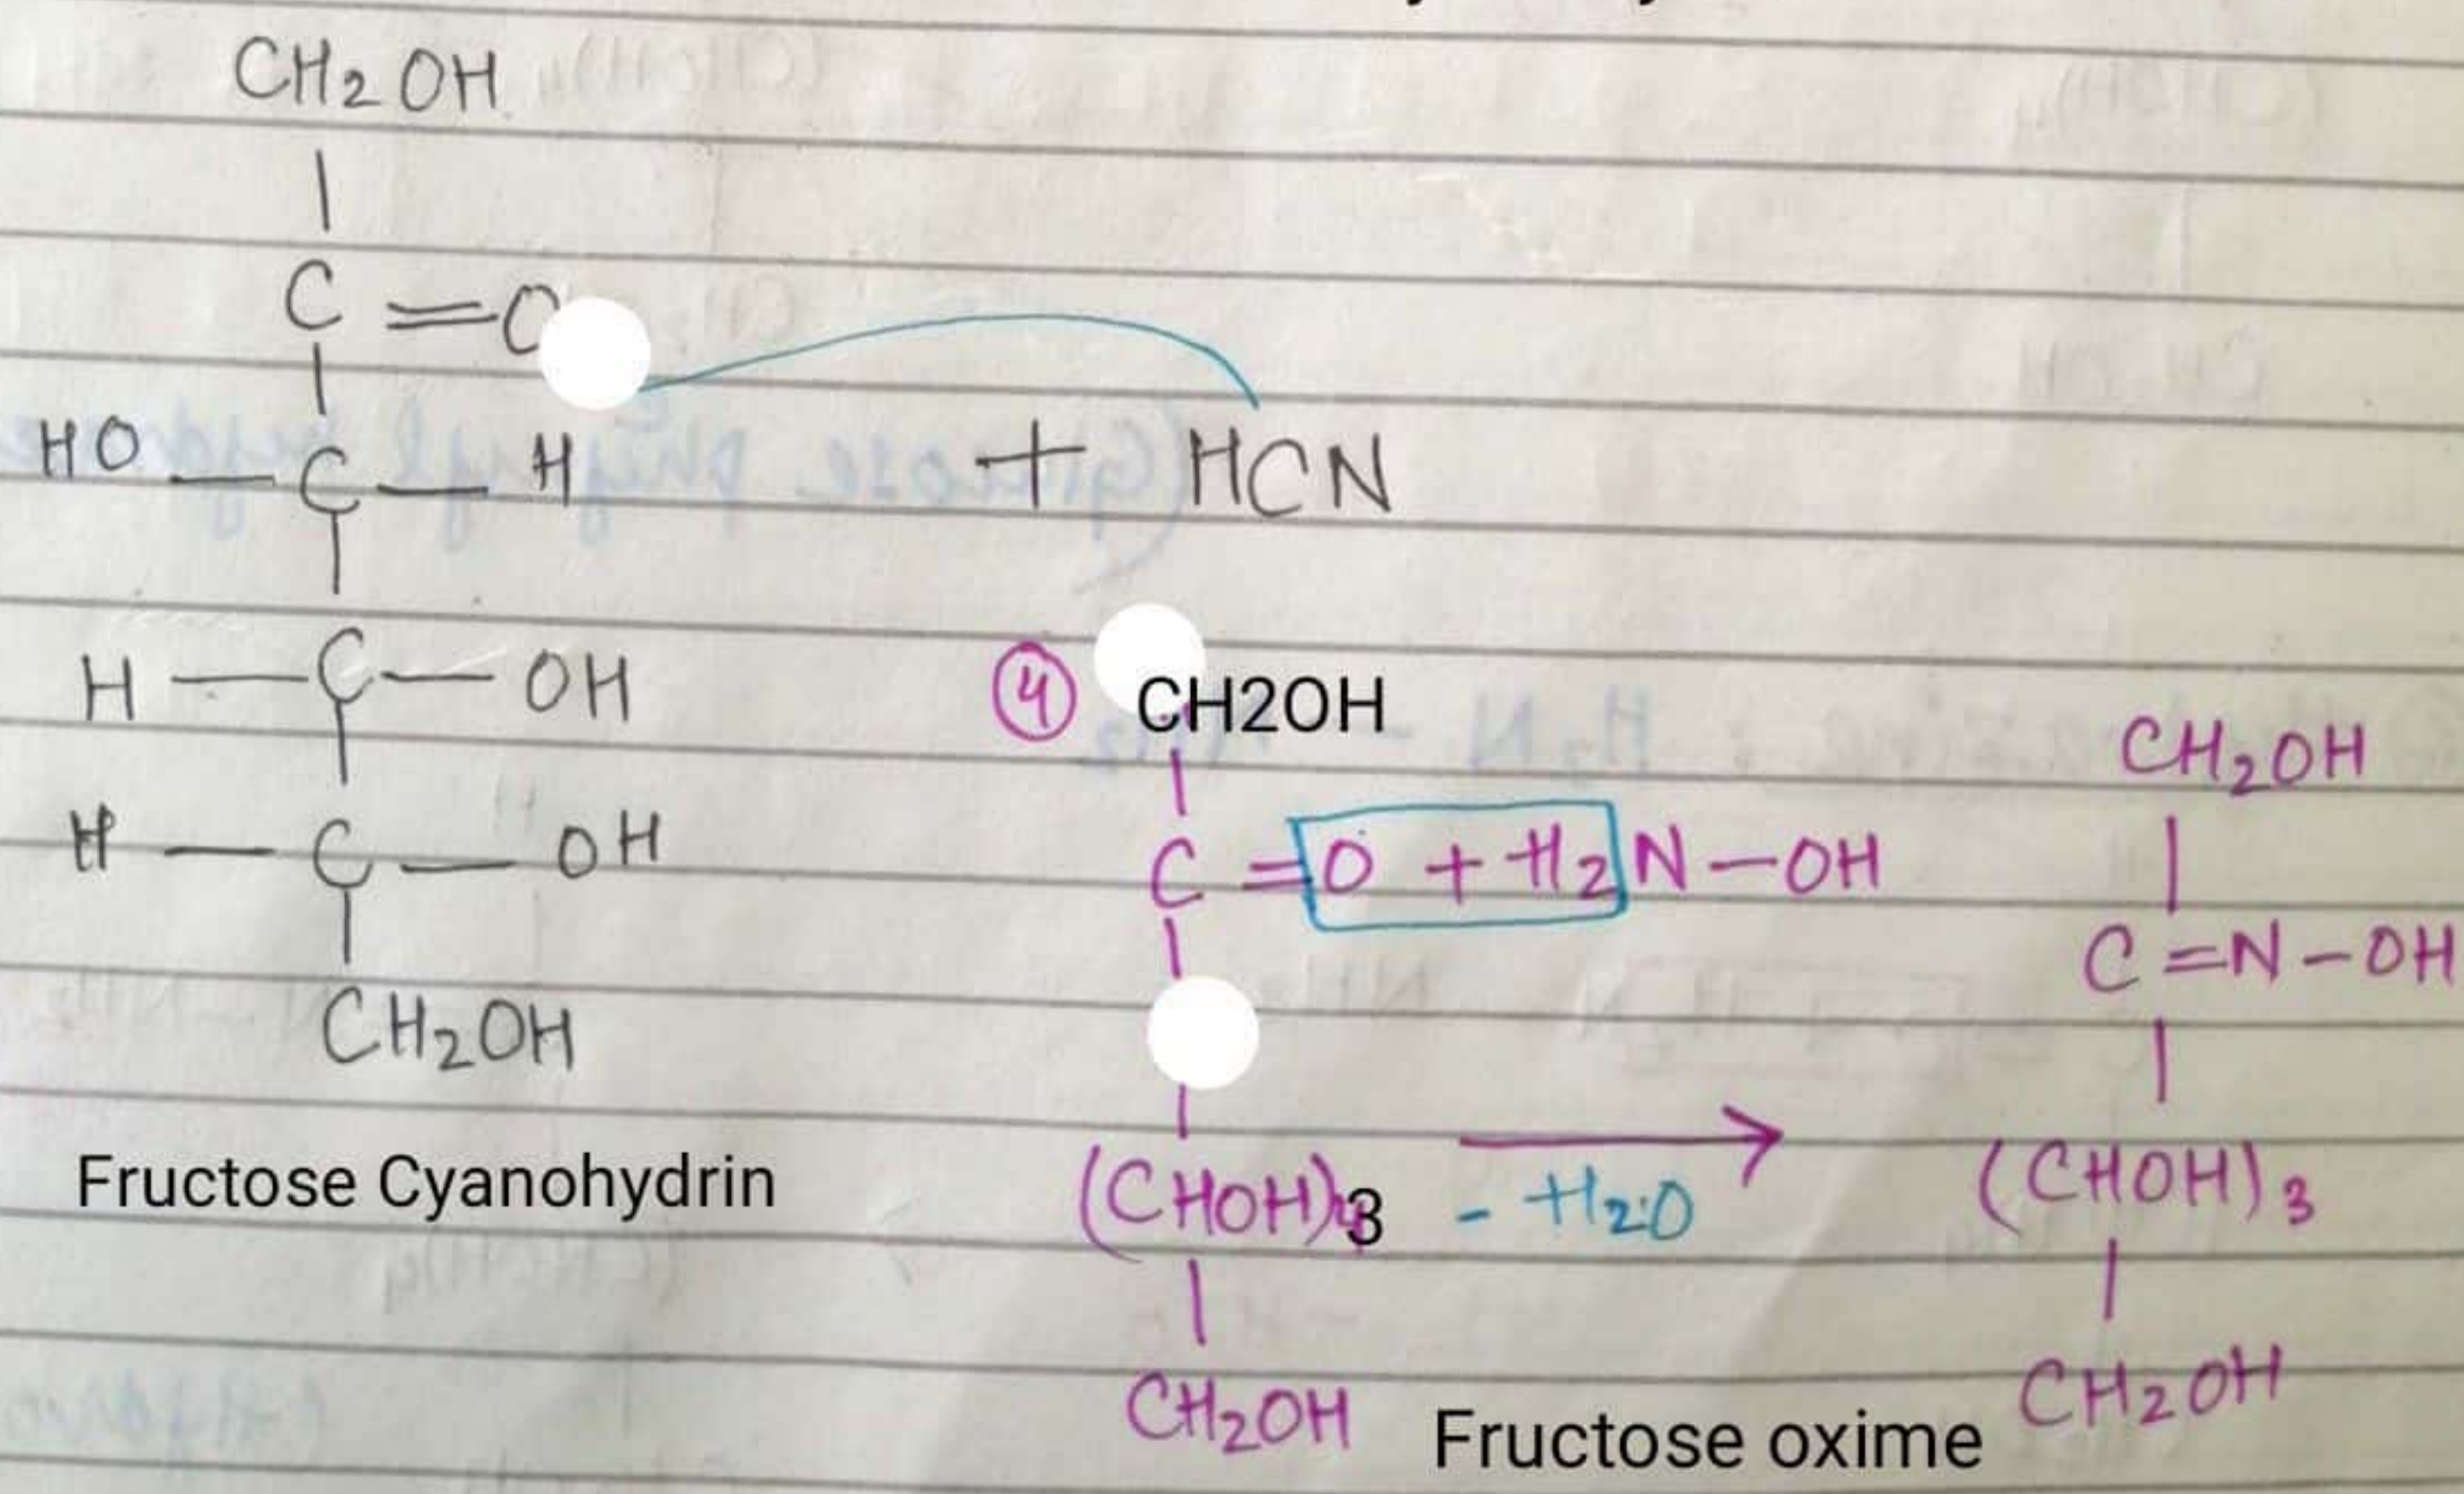 CH2 OH
C = O
HO — C — H + HCN
H — C — OH
H — C — OH
CH2OH
Fructose Cyanohydrin
④ CH2OH
C = O + H2N — OH
(CHOH)3
CH2OH
- H2O
CH2OH
C = N - OH
(CHOH)3
CH2OH
Fructose oxime